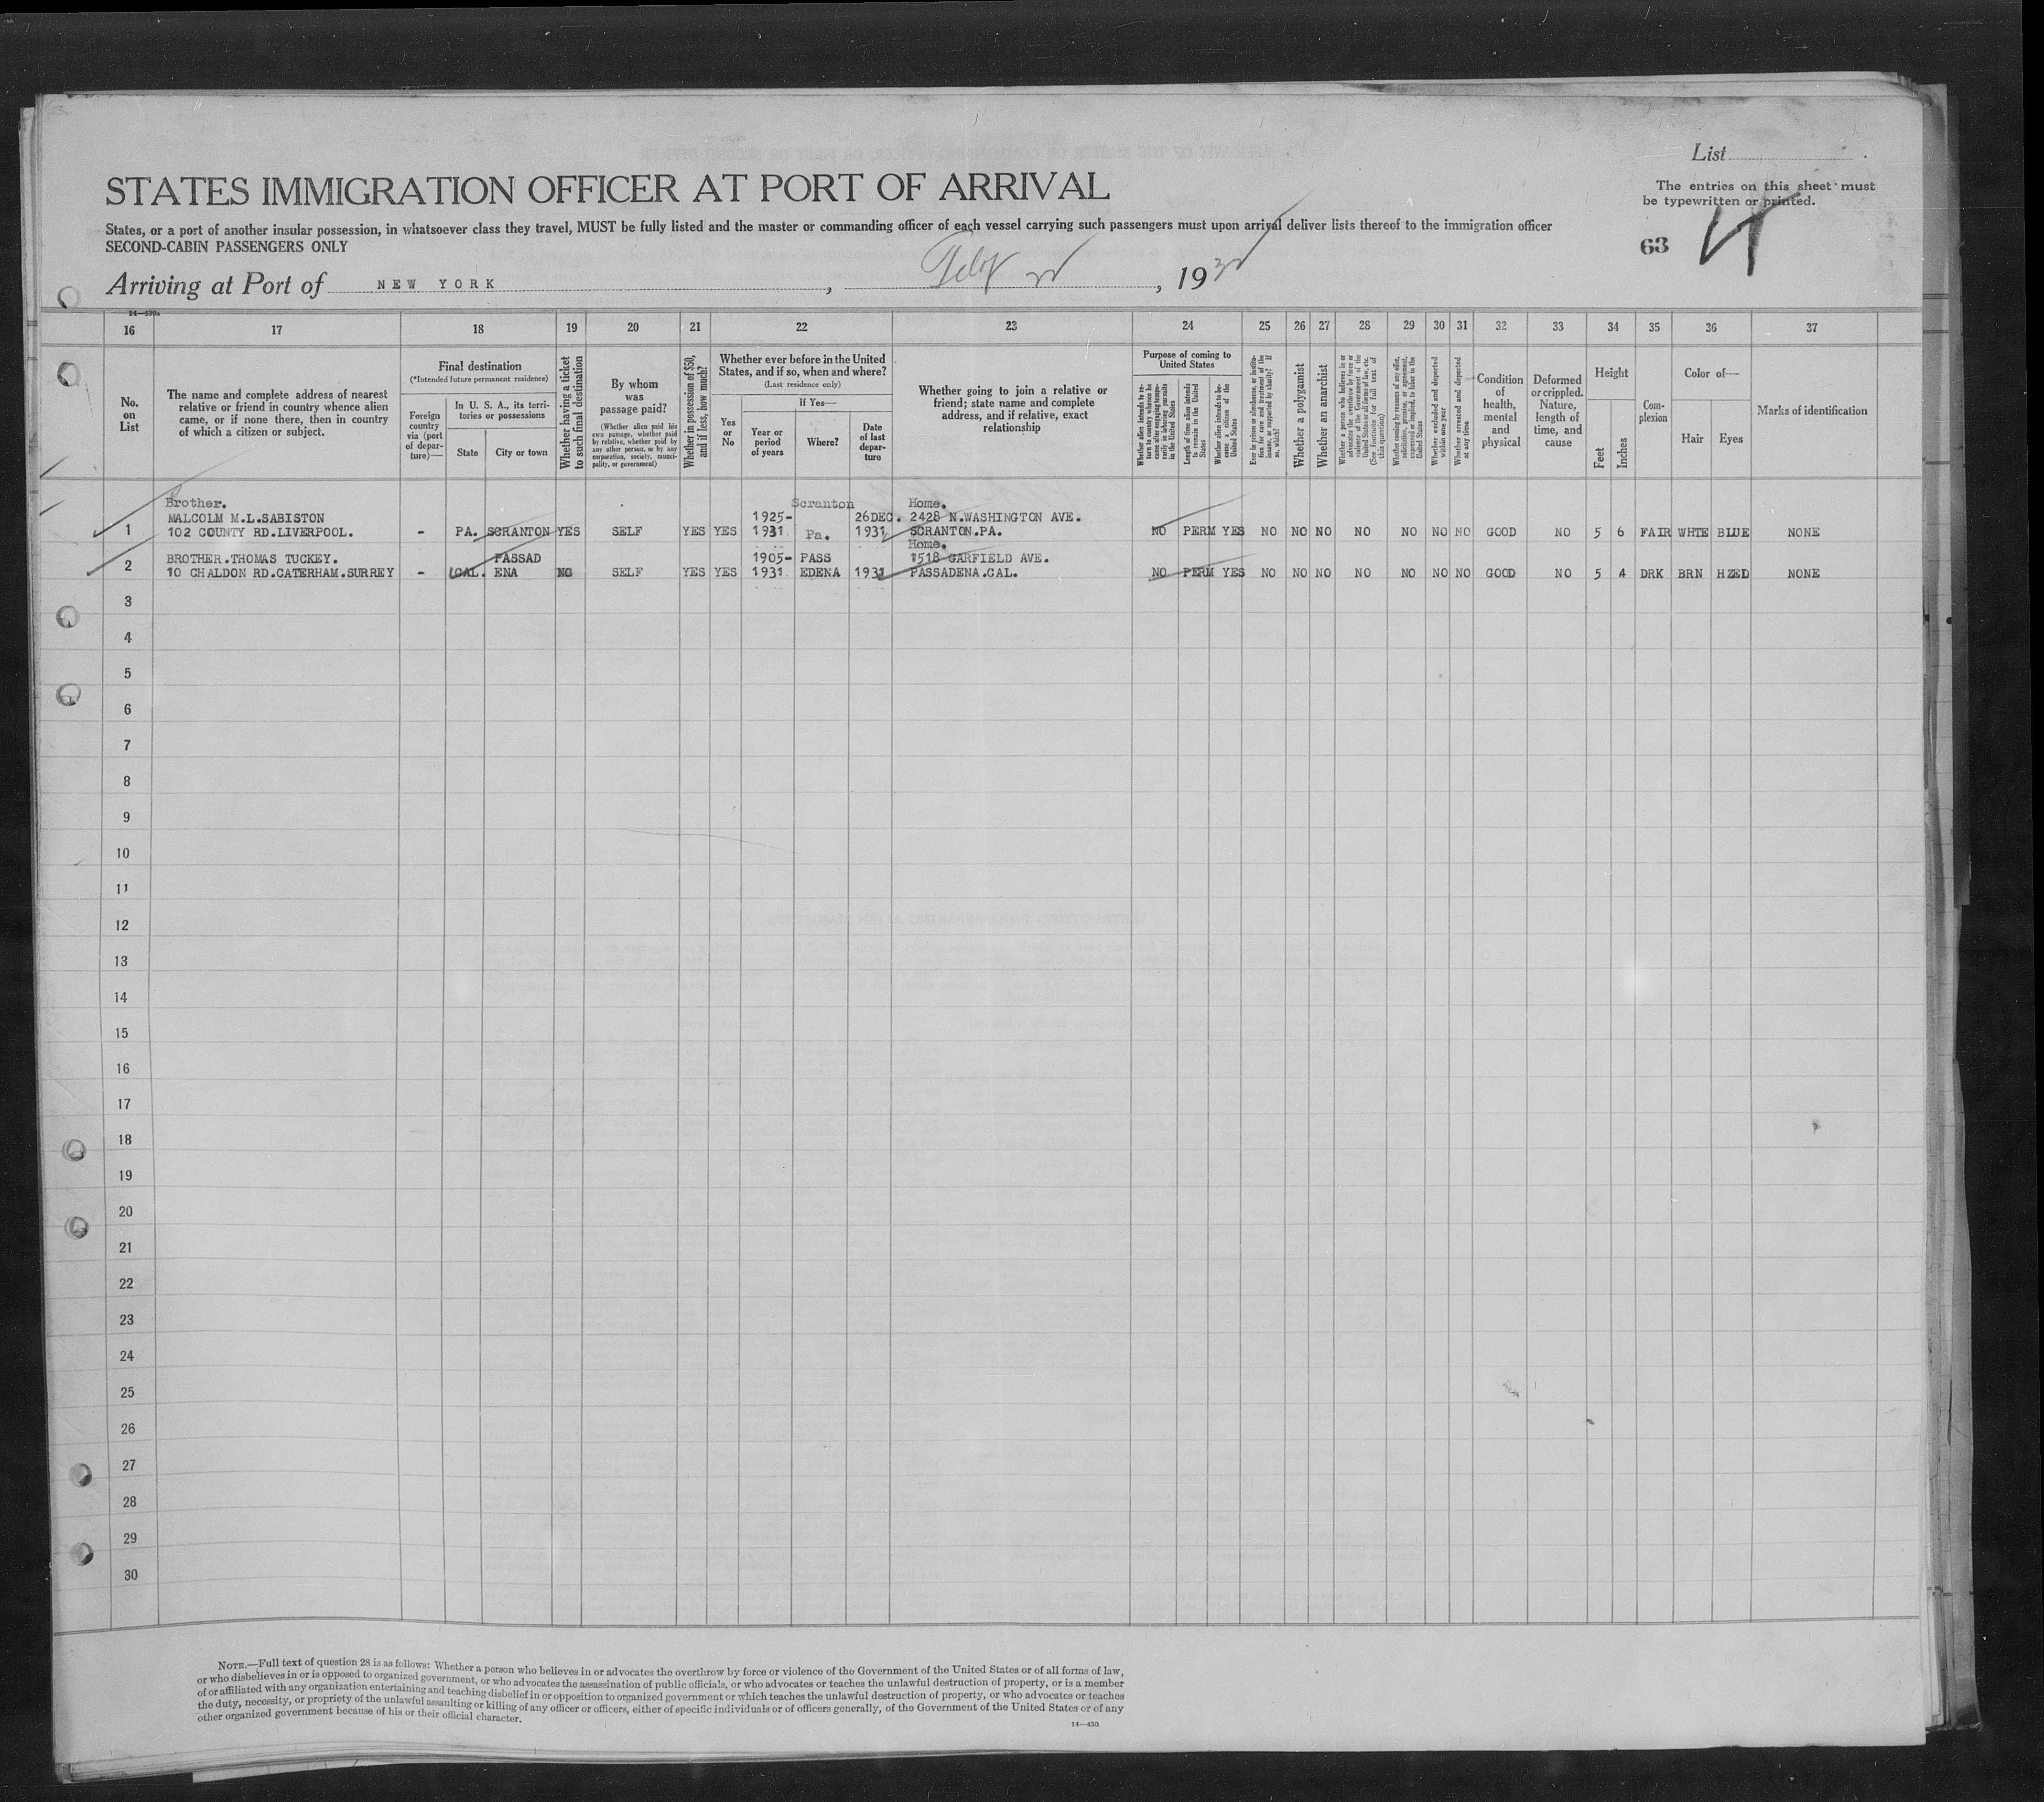 List
STATES IMMIGRATION OFFICER AT PORT OF ARRIVAL
The entries on this sheet must
be typewritten or printed.
States, or a port of another insular possession, in whatsoever class they travel, MUST be fully listed and the master or commanding officer of each vessel carrying such passengers must upon arrival deliver lists thereof to the immigration officer
SECOND-CABIN PASSENGERS ONLY
63
Arriving at Port of NEW YORK , , 19
14—430a
16 17 18 19 20 21 22 23 24 25 26 27 28 29 30 31 32 33 34 35 36 37
No.
on
List
The name and complete address of nearest
relative or friend in country whence alien
came, or if none there, then in country
of which a citizen or subject.
Final destination
(*Intended future permanent residence)
Foreign
country
via (port
of depar-
ture)—
In U. S. A., its terri-
tories or possessions
State
City or town
Whether having a ticket
to such final destination
By whom
was
passage paid?
(Whether alien paid his
own passage, whether paid
by relative, whether paid by
any other person, or by any
corporation, society, munici-
pality, or government)
Whether in possession of $50,
and if less, how much?
Whether ever before in the United
States, and if so, when and where?
(Last residence only)
Yes
or
No
If Yes—
Year or
period
of years
Where?
Date
of last
depar-
ture
Whether going to join a relative or
friend; state name and complete
address, and if relative, exact
relationship
Purpose of coming to
United States
Whether alien intends to re-
turn to country whence he
came after engaging tempo-
rarily in laboring pursuits
in the United States
Length of time alien intends
to remain in the United
States
Whether alien intends to be-
come a citizen of the
United States
Ever in prison or almshouse, or institu-
tion for care and treatment of the
insane, or supported by charity? If
so, which?
Whether a polygamist
Whether an anarchist
Whether a person who believes in or
advocates the overthrow by force or
violence of the Government of the
United States or all forms of law, etc.
(See footnote for full text of
this question)
Whether coming by reason of any offer,
solicitation, promise, or agreement,
expressed or implied, to labor in the
United States
Whether excluded and deported
within one year
Whether arrested and deported
at any time
Condition
of
health,
mental
and
physical
Deformed
or crippled.
Nature,
length of
time, and
cause
Height
Feet
Inches
Com-
plexion
Color of—
Hair
Eyes
Marks of identification
Brother. Scranton Home.
MALCOLM M.L.SABISTON 1925- 26DEC. 2428 N.WASHINGTON AVE.
1 102 COUNTY RD.LIVERPOOL. - PA. SCRANTON YES SELF YES YES 1931 Pa. 1931 SCRANTON.PA. NO PERM YES NO NO NO NO NO NO NO GOOD NO 5 6 FAIR WHTE BLUE NONE
Home.
BROTHER.THOMAS TUCKEY. PASSAD 1905- PASS 1518 GARFIELD AVE.
2 10 CHALDON RD.CATERHAM.SURREY - CAL. ENA NO SELF YES YES 1931 EDENA 1931 PASSADENA.CAL. NO PERM YES NO NO NO NO NO NO NO GOOD NO 5 4 DRK BRN HZED NONE
3
4
5
6
7
8
9
10
11
12
13
14
15
16
17
18
19
20
21
22
23
24
25
26
27
28
29
30
NOTE.—Full text of question 28 is as follows: Whether a person who believes in or advocates the overthrow by force or violence of the Government of the United States or of all forms of law,
or who disbelieves in or is opposed to organized government, or who advocates the assassination of public officials, or who advocates or teaches the unlawful destruction of property, or is a member
of or affiliated with any organization entertaining and teaching disbelief in or opposition to organized government or which teaches the unlawful destruction of property, or who advocates or teaches
the duty, necessity, or propriety of the unlawful assaulting or killing of any officer or officers, either of specific individuals or of officers generally, of the Government of the United States or of any
other organized government because of his or their official character.
14—430